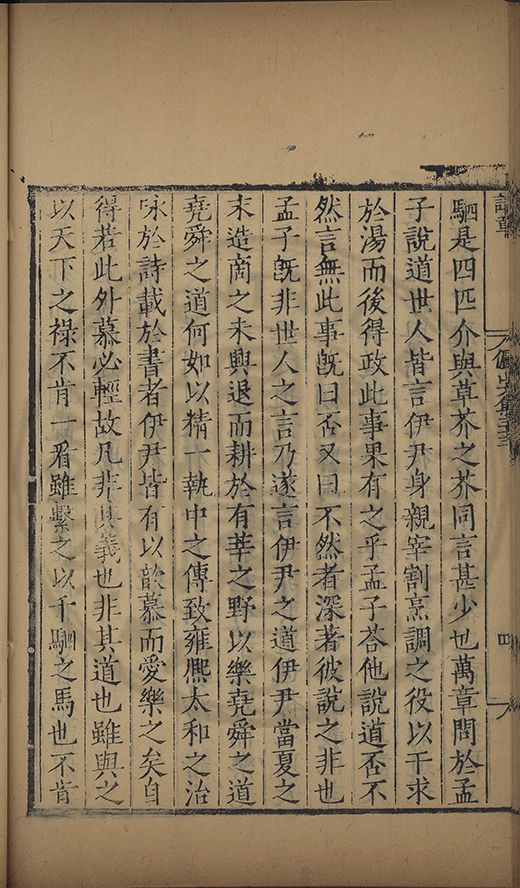 講章
四
駟是四匹介與草芥之芥同言甚少也萬章問於孟
子說道世人皆言伊尹身親宰割烹調之役以干求
於湯而後得政此事果有之乎孟子荅他說道否不
然言無此事旣曰否又曰不然者深著彼說之非也
孟子旣非世人之言乃遂言伊尹之道伊尹當夏之
末造商之未興退而耕於有莘之野以樂堯舜之道
堯舜之道何如以精一執中之傳致雍熈太和之治
咏於詩載於書者伊尹皆有以歆慕而愛樂之矣自
得若此外慕必輕故凡非其義也非其道也雖與之
以天下之祿不肯一看雖繫之以千駟之馬也不肯